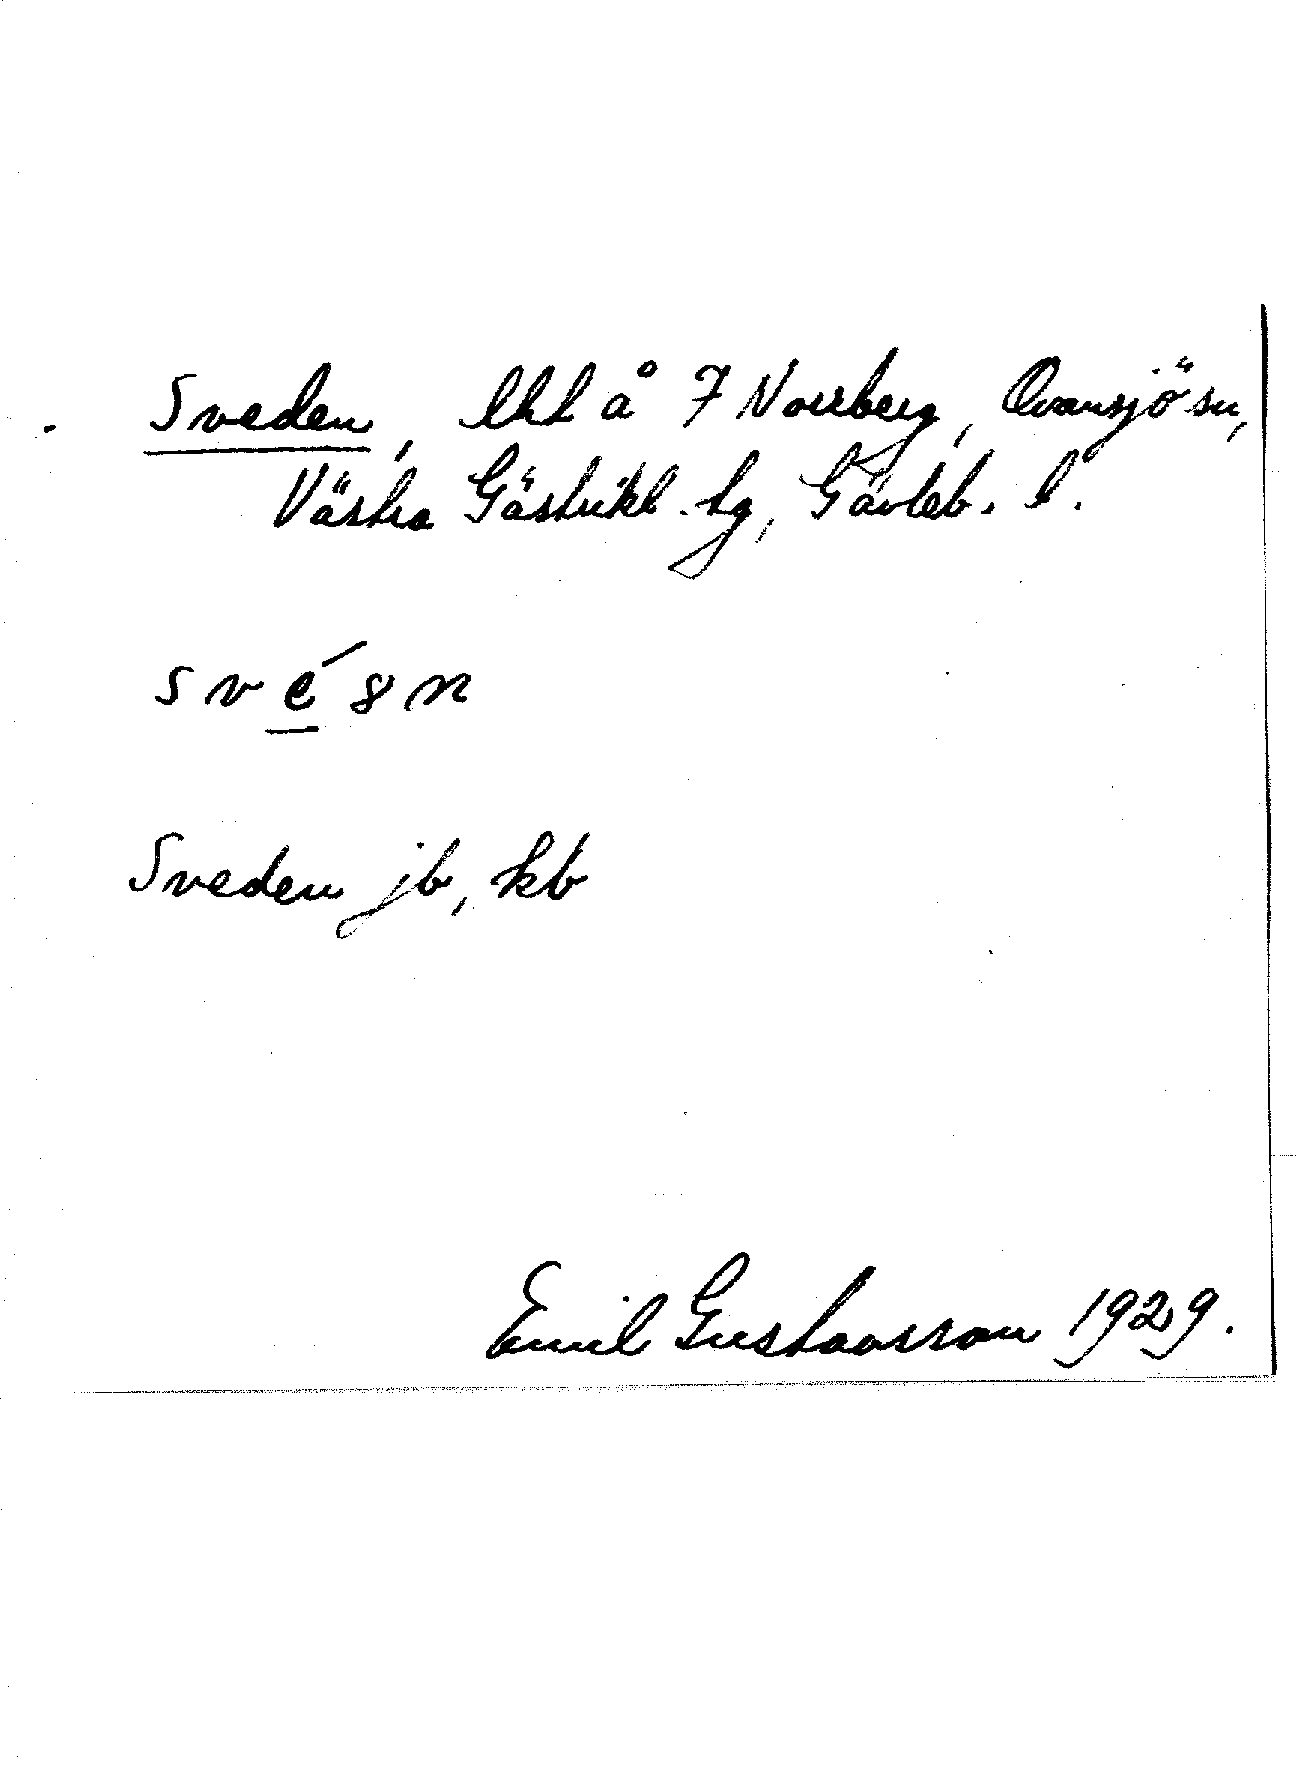 Sveden, lht å 7 Norrberg, Ovansjö sn,
Västra Gästrikl. tg, Gävleb. l.
Sveden jb, kb
Emil Gustavsson 1929.